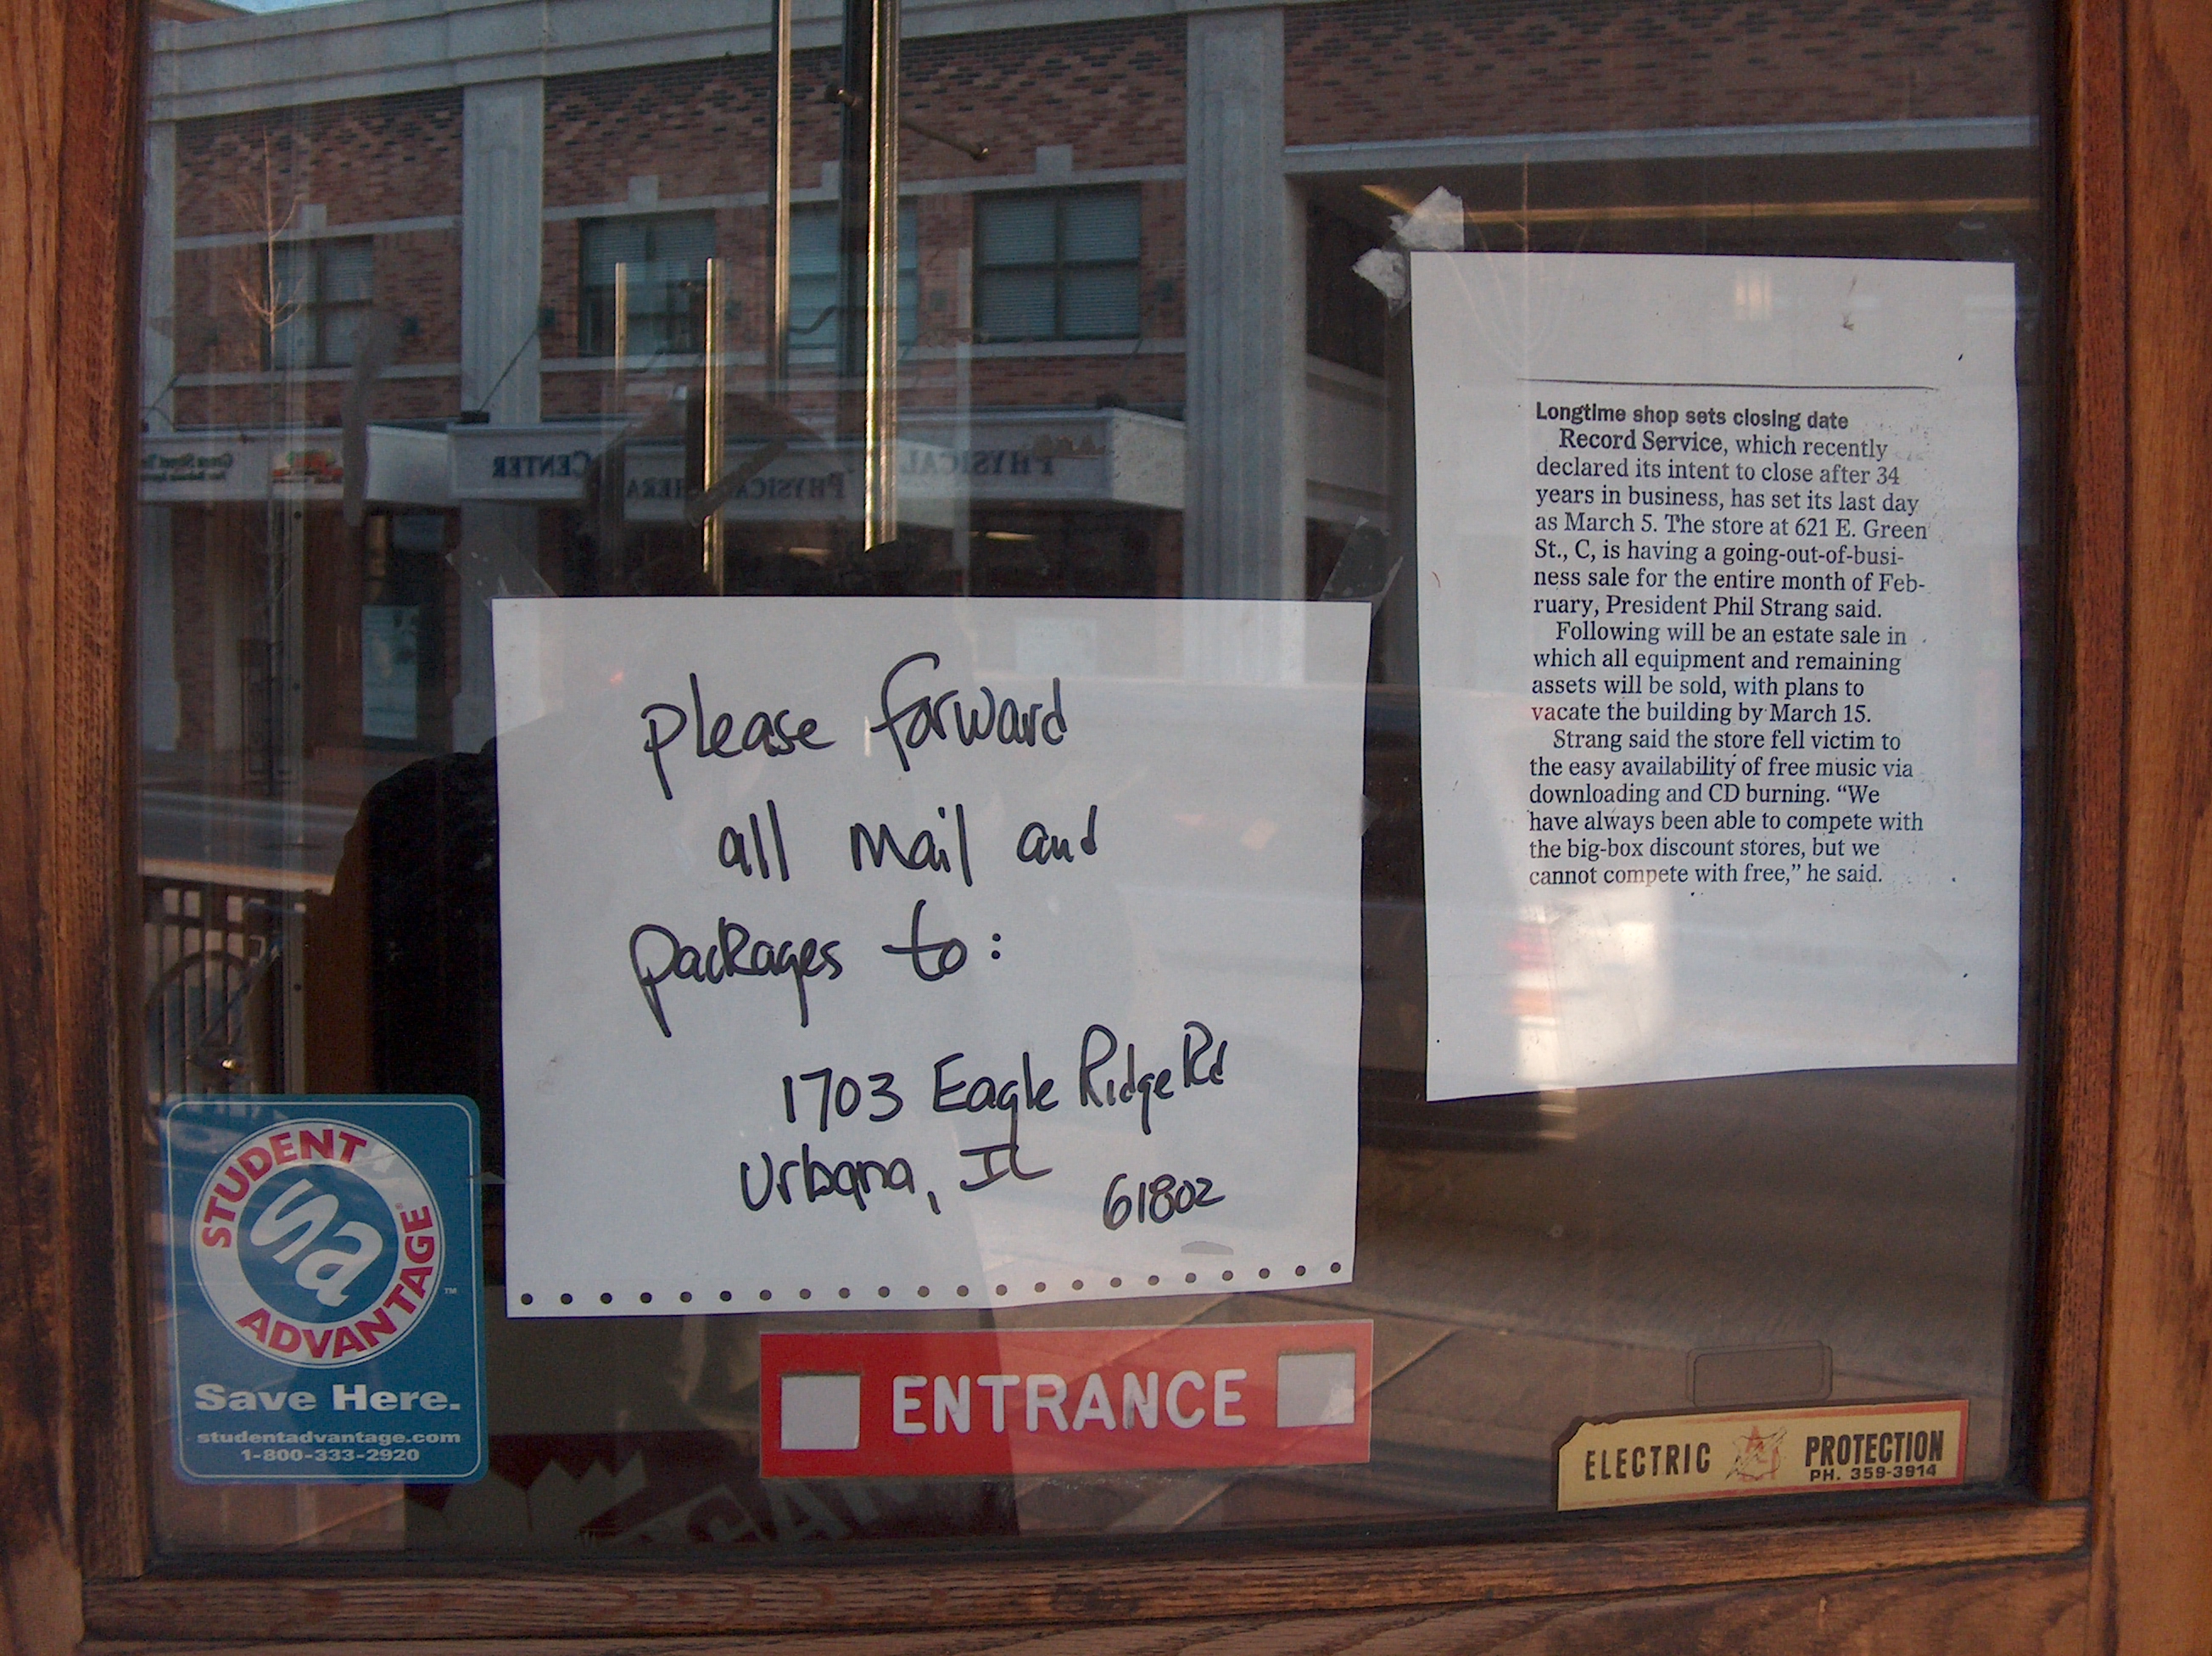 please forward
all mail and
packages to:
1703 Eagle Ridge Rd
Urbana, IL 61802
Longtime shop sets closing date
Record Service, which recently
declared its intent to close after 34
years in business, has set its last day
as March 5. The store at 621 E. Green
St., C, is having a going-out-of-busi-
ness sale for the entire month of Feb-
ruary, President Phil Strang said.
Following will be an estate sale in
which all equipment and remaining
assets will be sold, with plans to
vacate the building by March 15.
Strang said the store fell victim to
the easy availability of free music via
downloading and CD burning. “We
have always been able to compete with
the big-box discount stores, but we
cannot compete with free,” he said.
STUDENT
sa
ADVANTAGE
Save Here.
studentadvantage.com
1-800-333-2920
ENTRANCE
ELECTRIC PROTECTION
PH. 359-3914
PHYSICAL
CENTER